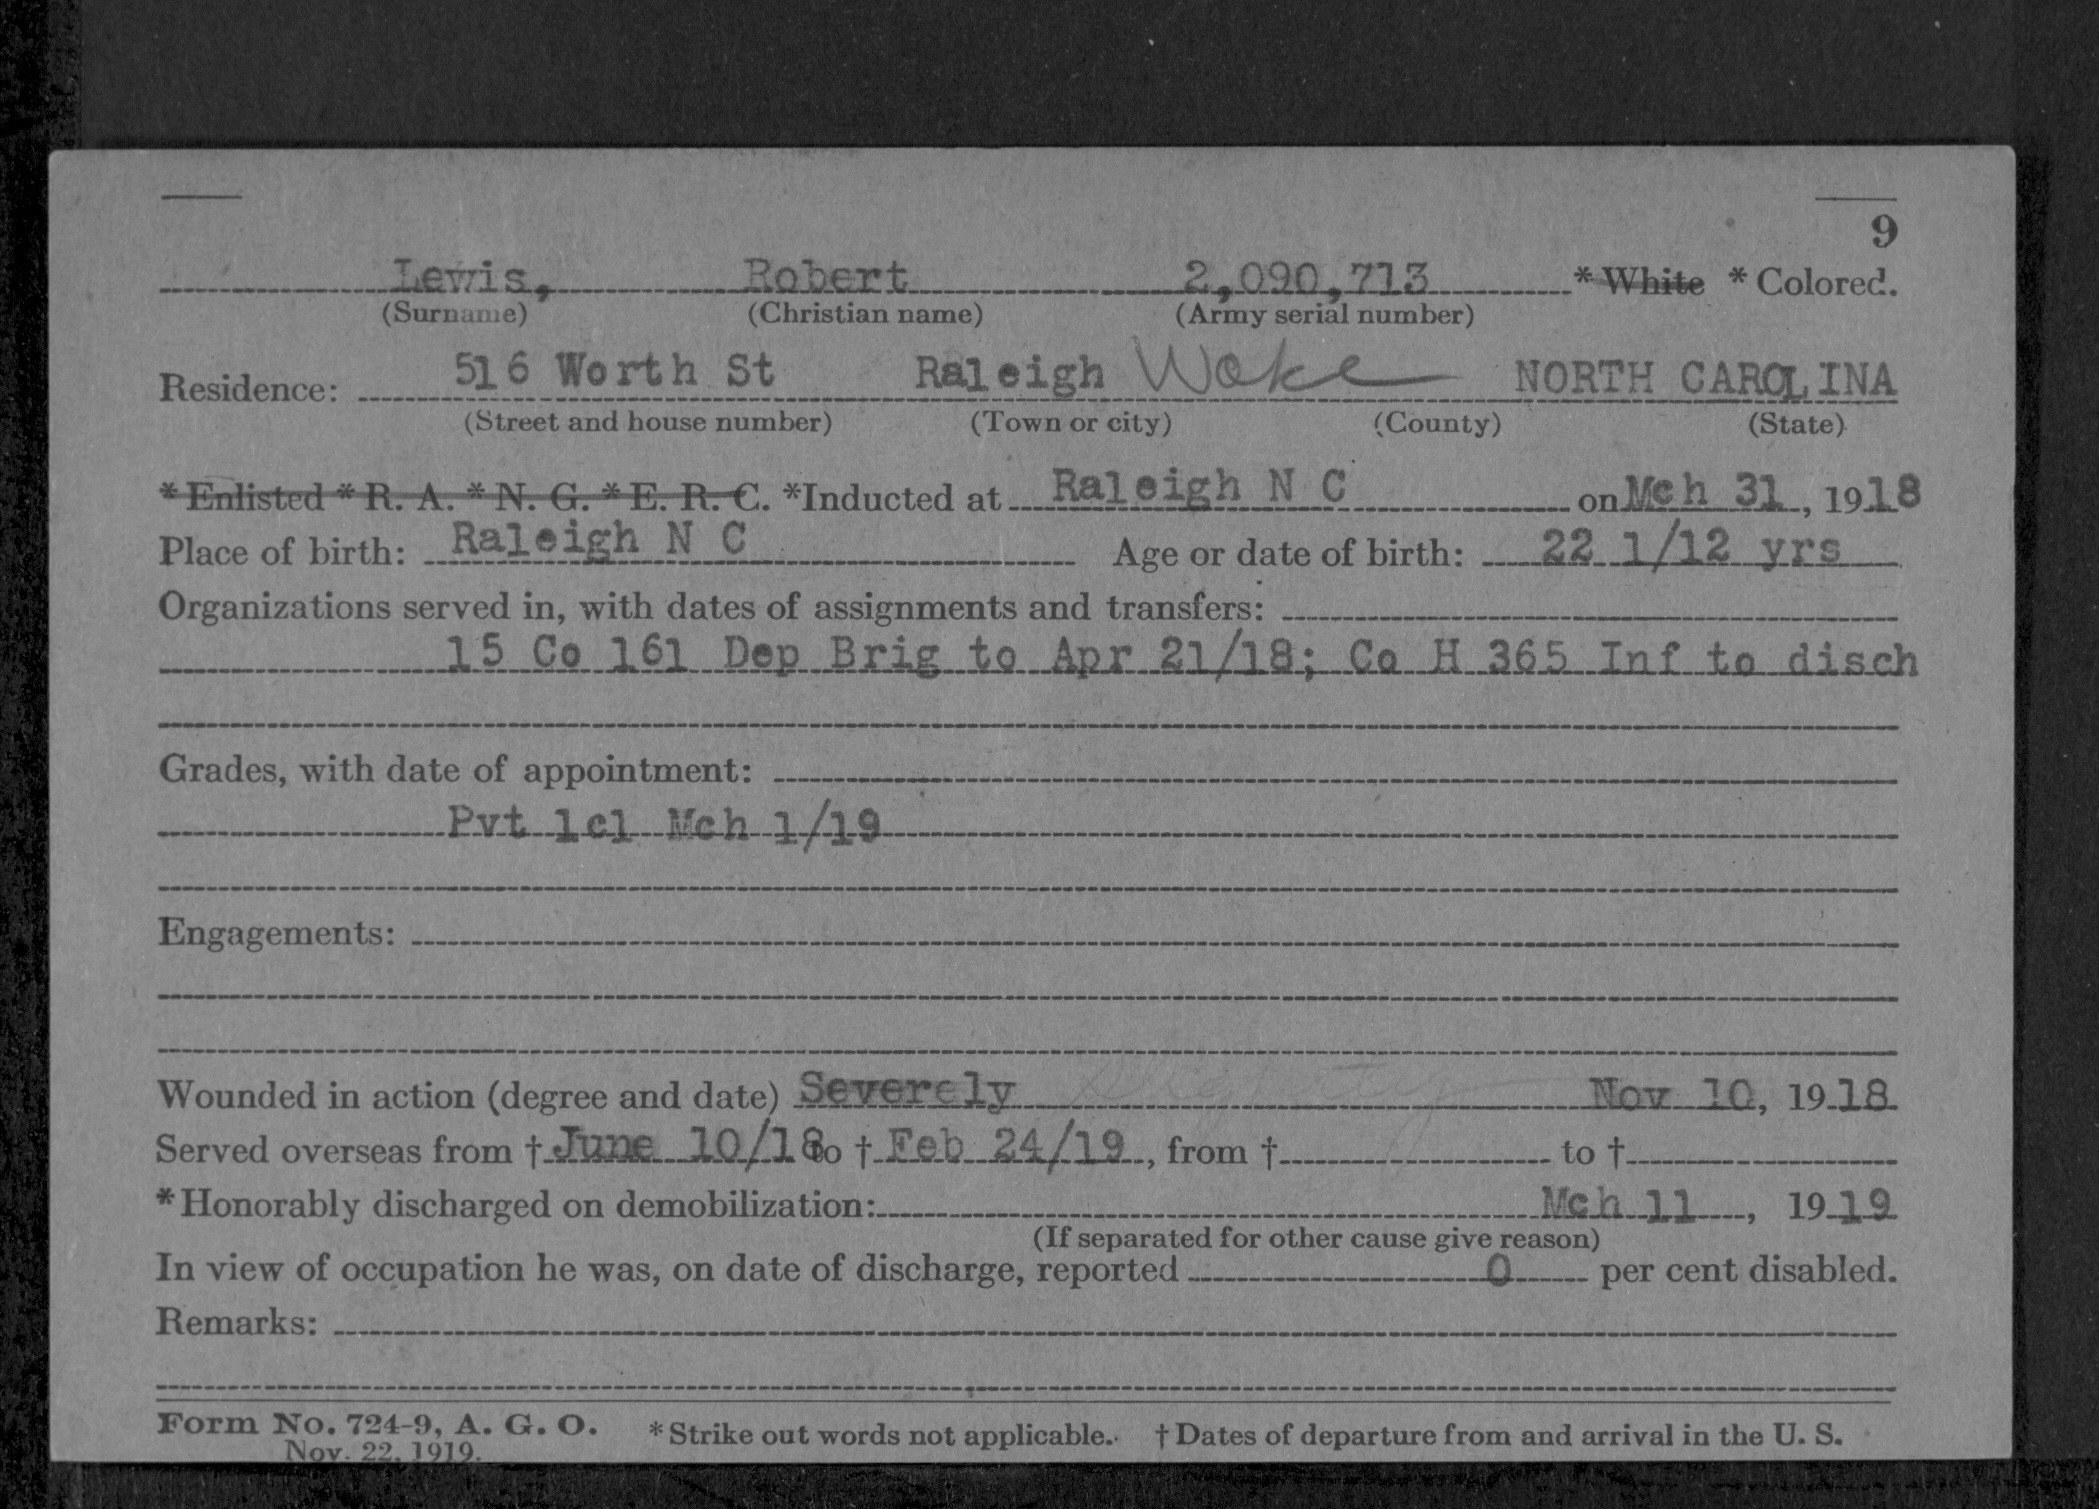 9
Lewis, Robert 2,090,713 * White * Colored.
(Surname) (Christian name) (Army serial number)
Residence: 516 Worth St Raleigh Wake NORTH CAROLINA
(Street and house number) (Town or city) (County) (State)
* Enlisted * R. A. * N. G. * E. R. C. *Inducted at Raleigh N C on Mch 31, 1918
Place of birth: Raleigh N C Age or date of birth: 22 1/12 yrs
Organizations served in, with dates of assignments and transfers:
15 Co 161 Dep Brig to Apr 21/18; Co H 365 Inf to disch
Grades, with date of appointment:
Pvt 1cl Mch 1/19
Engagements:
Wounded in action (degree and date) Severely Nov 10, 1918
Served overseas from † June 10/18 to † Feb 24/19, from † to †
* Honorably discharged on demobilization: Mch 11, 1919
(If separated for other cause give reason)
In view of occupation he was, on date of discharge, reported 0 per cent disabled.
Remarks:
Form No. 724-9, A. G. O. * Strike out words not applicable. † Dates of departure from and arrival in the U. S.
Nov. 22, 1919.